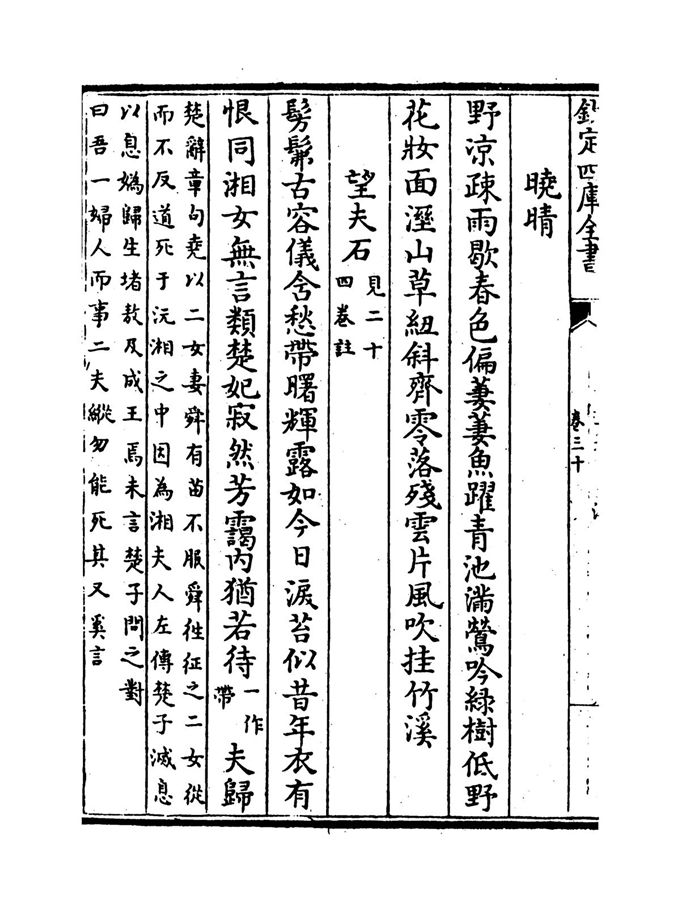 欽定四庫全書
卷三十
曉晴
野凉疎雨歇春色偏萋萋魚躍青池滿鶯吟綠樹低野
花妝面溼山草紐斜齊零落殘雲片風吹挂竹溪
望夫石見二十四卷註
髣髴古容儀含愁帶曙輝露如今日淚苔似昔年衣有
恨同湘女無言類楚妃寂然芳靄內猶若待一作帶夫歸
楚辭章句堯以二女妻舜有苗不服舜徃征之二女從
而不反道死于沅湘之中因為湘夫人左傳楚子滅息
以息媯歸生堵敖及成王焉未言楚子問之對
曰吾一婦人而事二夫縱勿能死其又奚言